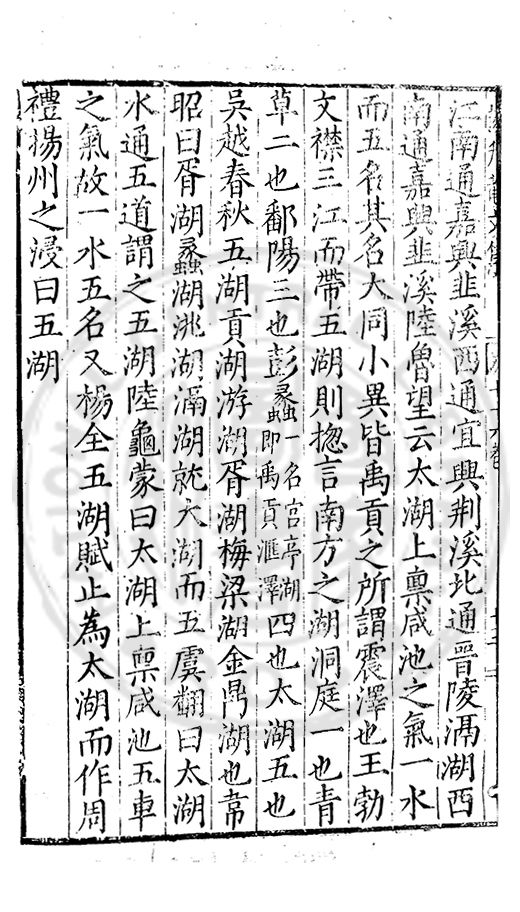 江南通嘉興韭溪西通宜興荆溪北通晉陵滆湖西
南通嘉興韭溪陸魯望云太湖上禀咸池之氣一水
而五名其名大同小異皆禹貢之所謂震澤也王勃
文襟三江而帶五湖則揔言南方之湖洞庭一也青
草二也鄱陽三也彭蠡一名宫亭湖即禹貢滙澤四也太湖五也
吳越春秋五湖貢湖游湖胥湖梅梁湖金鼎湖也韋
昭曰胥湖蠡湖洮湖滆湖就太湖而五虞翻曰太湖
水通五道謂之五湖陸龜蒙曰太湖上禀咸池五車
之氣故一水五名又楊全五湖賦止為太湖而作周
禮揚州之浸曰五湖